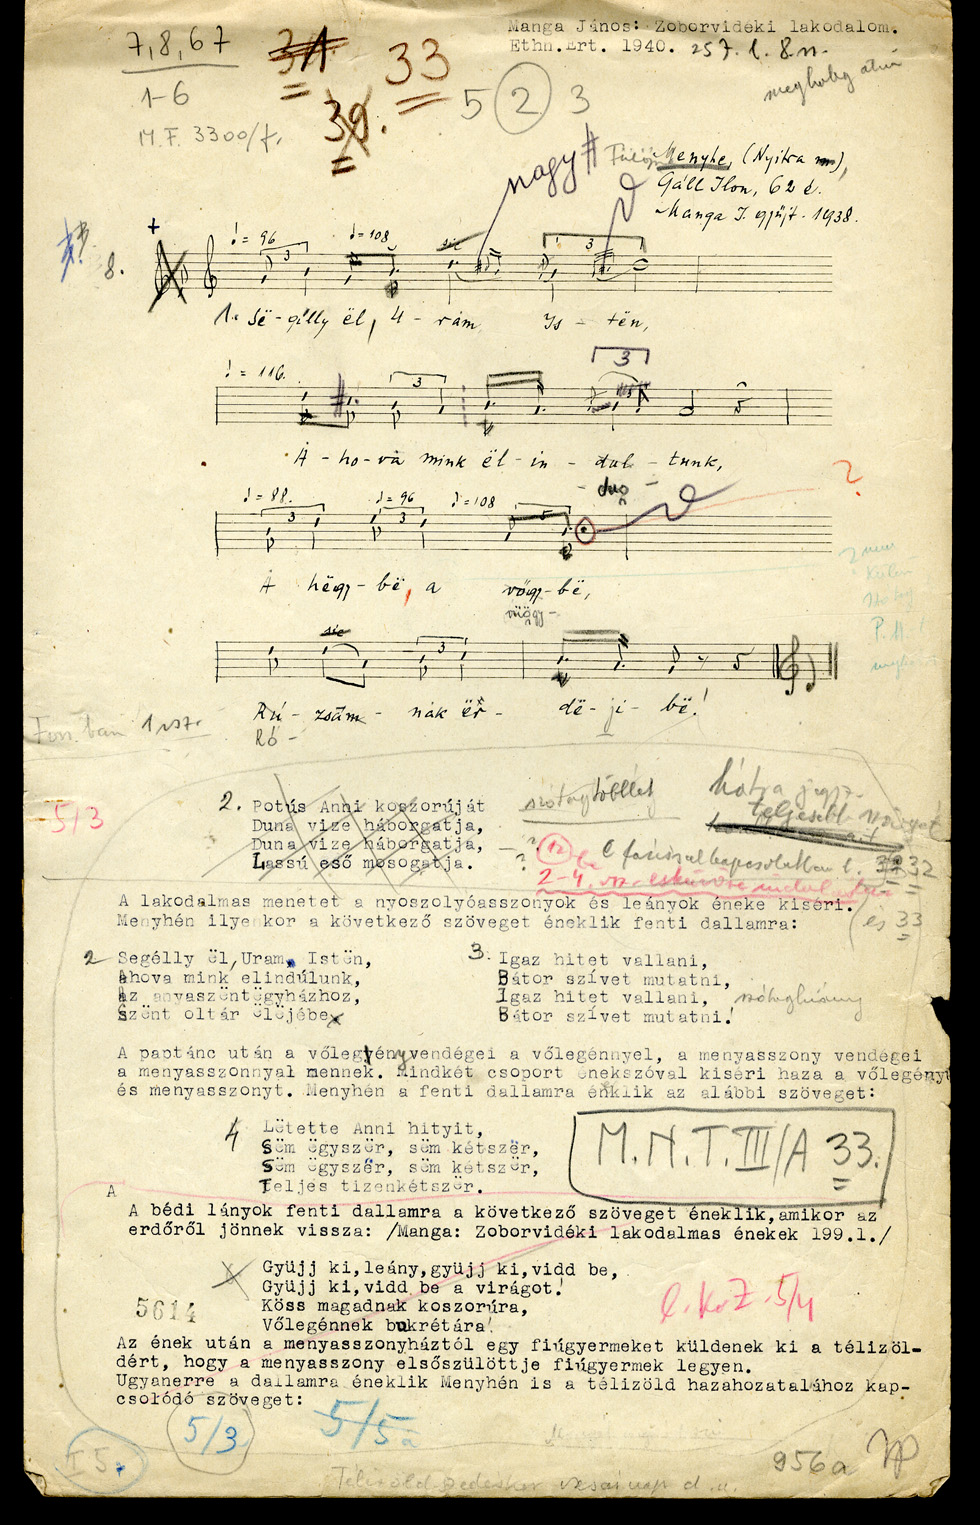 Manga János: Zoborvidéki lakodalom.
Ethn.Ért. 1940. 257. l. 8 n.
7,8,67
1-6
M.F. 3300/
31
33
39.
5 2 3
nagy #
Menyhe, (Nyitra m),
Gáll Ilon, 62 é.
Manga J. gyűjt. 1938.
8.
♩= 96 3 ♩=108 sic 3
1. Së-gélly ël, U-rám Is-tën,
♩= 116. 3 3
A-ho-va mink ël-in-dul-tunk,
♩= 88. 3 ♩= 96 3 ♩=108
?
A hëgy-bë, a vögy-bë,
sic 3
Rú-zsám-nak ër-dë-ji-bë!
Ró-
1 vsz.
5/3
2. Potús Anni koszorúját
Duna vize háborgatja,
Duna vize háborgatja,
Lassú eső mosogatja.
szótagtöbblet
32
A lakodalmas menetet a nyoszolyóasszonyok és leányok éneke kíséri.
Menyhén ilyenkor a következő szöveget éneklik fenti dallamra:
és 33
2 Segélly ël, Uram, Istën,
Ahova mink elindúlunk,
Az anyaszëntëgyházhoz,
Szënt oltár ëlöjébe
3. Igaz hitet vallani,
Bátor szívet mutatni,
Igaz hitet vallani,
Bátor szívet mutatni!
szótaghiány
A paptánc után a vőlegény vendégei a vőlegénnyel, a menyasszony vendégei
a menyasszonnyal mennek. Mindkét csoport énekszóval kíséri haza a vőlegényt
és menyasszonyt. Menyhén a fenti dallamra éneklik az alábbi szöveget:
4 Lëtette Anni hityit,
Sëm ëgyszër, sëm kétszër,
Sëm ëgyszër, sëm kétszër,
Teljes tizenkétszër.
M.N.T.III/A 33.
A
A bédi lányok fenti dallamra a következő szöveget éneklik,amikor az
erdőről jönnek vissza: /Manga: Zoborvidéki lakodalmas énekek 199.l./
Gyüjj ki,leány,gyüjj ki,vidd be,
Gyüjj ki,vidd be a virágot!
Köss magadnak koszorúra,
Vőlegénnek bukrétára!
5614
5/4
Az ének után a menyasszonyháztól egy fiúgyermeket küldenek ki a télizöl-
dért, hogy a menyasszony elsőszülöttje fiúgyermek legyen.
Ugyanerre a dallamra éneklik Menyhén is a télizöld hazahozatalához kap-
csolódó szöveget:
5/3
5/5a
I 5.
956a